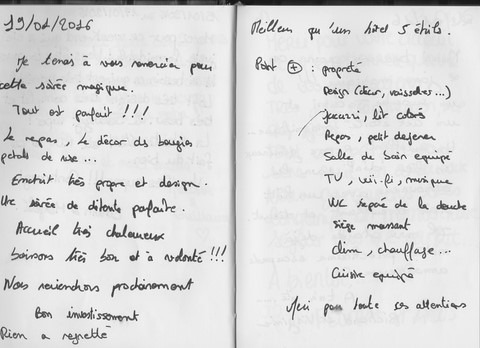 19/01/2016
Je tenais à vous remercier pour
cette soirée magique.
Tout est parfait !!!
Le repas, le décor des bougies
petals de rose...
Endroit très propre et design.
Une soirée de détente parfaite.
Accueil très chaleureux
boissons très bon et à volonté !!!
Nous reviendrons prochainement
Bon investissement
Rien a regretté
Meilleur qu'un hôtel 5 étoils.
Point + : propreté
Design (décor, vaisselles...)
Jacuzzi, lit
Repas, petit dejener
Salle de bain equipé
TV, wi-fi, musique
WC separé de la douche
Siège massant
Clim, chauffage...
Cuisine equipé
Merci pour toute ses attentions